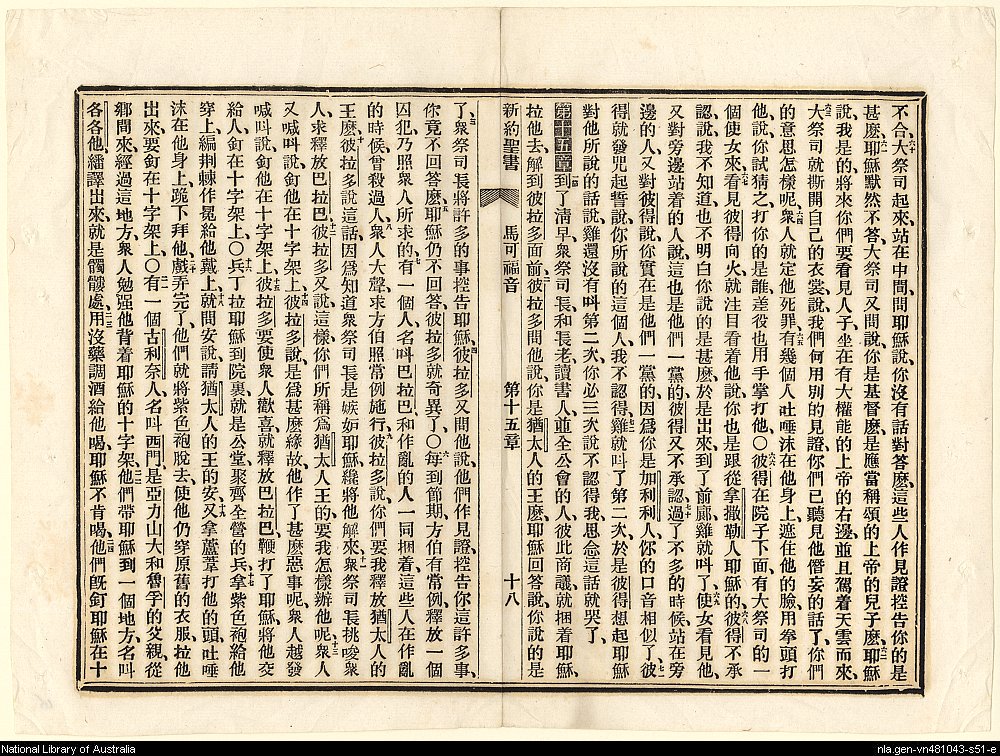 不合、大祭司起來、站在中間、問耶穌說、你沒有話對答麽、這些人作見證控告你的是
甚麽、耶穌默然不答、大祭司又問說、你是基督麽、是應當稱頌的上帝的兒子麽、耶穌
說、我是的、將來你們要看見人子、坐在有大權能的上帝的右邊、並且駕着天雲而來、
大祭司就撕開自己的衣裳說、我們何用別的見證、你們已聽見他僭妄的話了、你們
的意思怎樣呢、衆人就定他死罪、有幾個人吐唾沫在他身上、遮住他的臉、用拳頭打
他、說、你試猜之、打你的是誰、差役也用手掌打他、○彼得在院子下面、有大祭司的一
個使女來、看見彼得向火、就注目看着他、說、你也是跟從拿撒勒人耶穌的、彼得不承
認、說、我不知道、也不明白你說的是甚麽、於是出來、到了前廊、雞就叫了、使女看見他、
又對旁邊站着的人說、這也是他們一黨的、彼得又不承認、過了不多的時候、站在旁
邊的人、又對彼得說、你實在是他們一黨的、因爲你是加利利人、你的口音相似了、彼
得就發咒起誓說、你所說的這個人、我不認得、雞就叫了第二次、於是彼得想起耶穌
對他所說的話、說、雞還沒有叫第二次、你必三次說不認得我、思念這話、就哭了、
第十五章 到了清早、衆祭司長和長老讀書人、並全公會的人、彼此商議、就捆着耶穌、
拉他去、解到彼拉多面前、彼拉多問他說、你是猶太人的王麽、耶穌回答說、你說的是
新約聖書 馬可福音 第十五章 十八
了、衆祭司長將許多的事控告耶穌、彼拉多又問他說、他們作見證控告你這許多事、
你竟不回答麽、耶穌仍不回答、彼拉多就奇異了、○每到節期、方伯有常例、釋放一個
囚犯、乃照衆人所求的、有一個人、名叫巴拉巴、和作亂的人一同捆着、這些人在作亂
的時候、曾殺過人、衆人大聲求方伯照常例施行、彼拉多說、你們要我釋放猶太人的
王麽、彼拉多說這話、因爲知道衆祭司長是嫉妒耶穌、纔將他解來、衆祭司長挑唆衆
人、求釋放巴拉巴、彼拉多又說、這樣、你們所稱爲猶太人王的、要我怎樣辦他呢、衆人
又喊叫說、釘他在十字架上、彼拉多說、是爲甚麽緣故、他作了甚麽惡事呢、衆人越發
喊叫說、釘他在十字架上、彼拉多要使衆人歡喜、就釋放巴拉巴、鞭打了耶穌、將他交
給人釘在十字架上、○兵丁拉耶穌到院裏、就是公堂、聚齊全營的兵、拿紫色袍給他
穿上、編荆棘作冕給他戴上、就問安說、請猶太人的王的安、又拿蘆葦打他的頭、吐唾
沫在他身上、跪下拜他、戲弄完了、他們就將紫色袍脫去、使他仍穿原舊的衣服、拉他
出來、要釘在十字架上、○有一個古利奈人、名叫西門、是亞力山大和魯孚的父親、從
鄉間來、經過這地方、衆人勉强他背着耶穌的十字架、他們帶耶穌到一個地方、名叫
各各他、繙譯出來、就是髑髏處、用沒藥調酒給他喝、耶穌不肯喝、他們旣釘耶穌在十
National Library of Australia
nla.gen-vn481043-s51-e